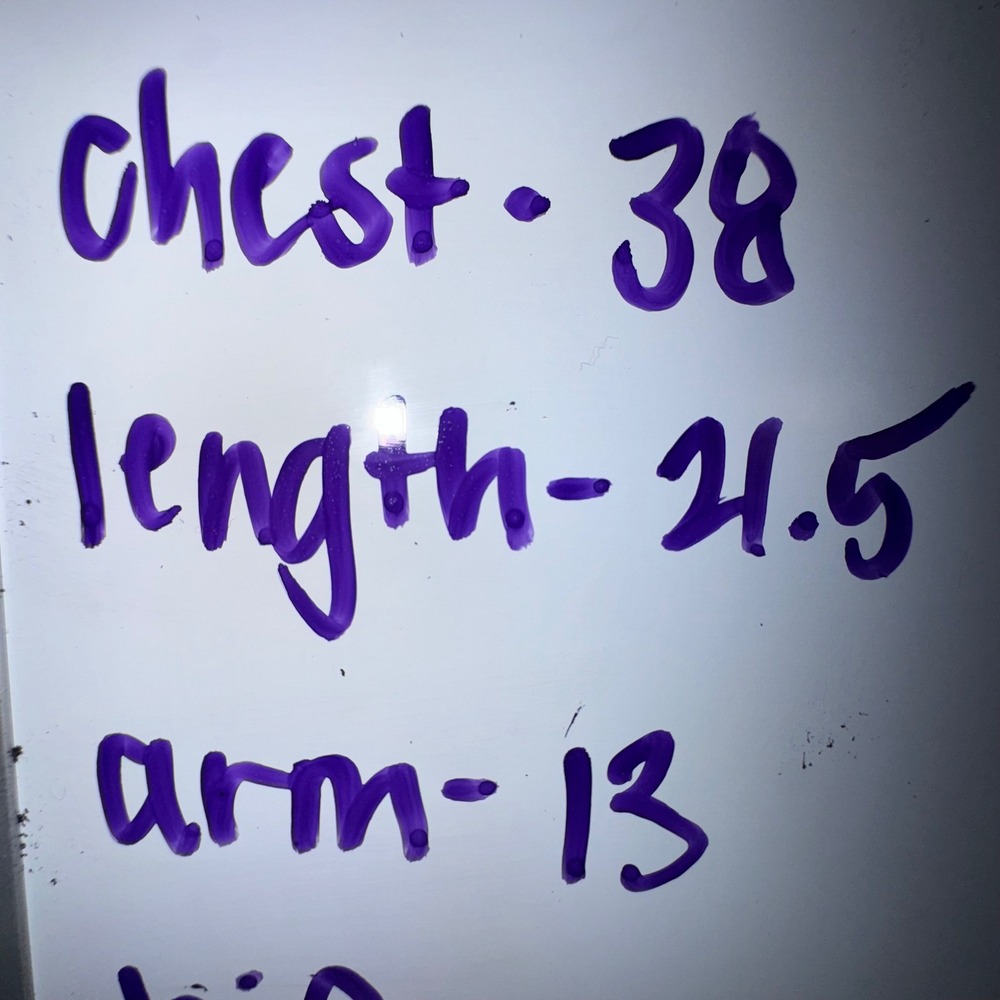 chest - 38
length - 21.5
arm - 13